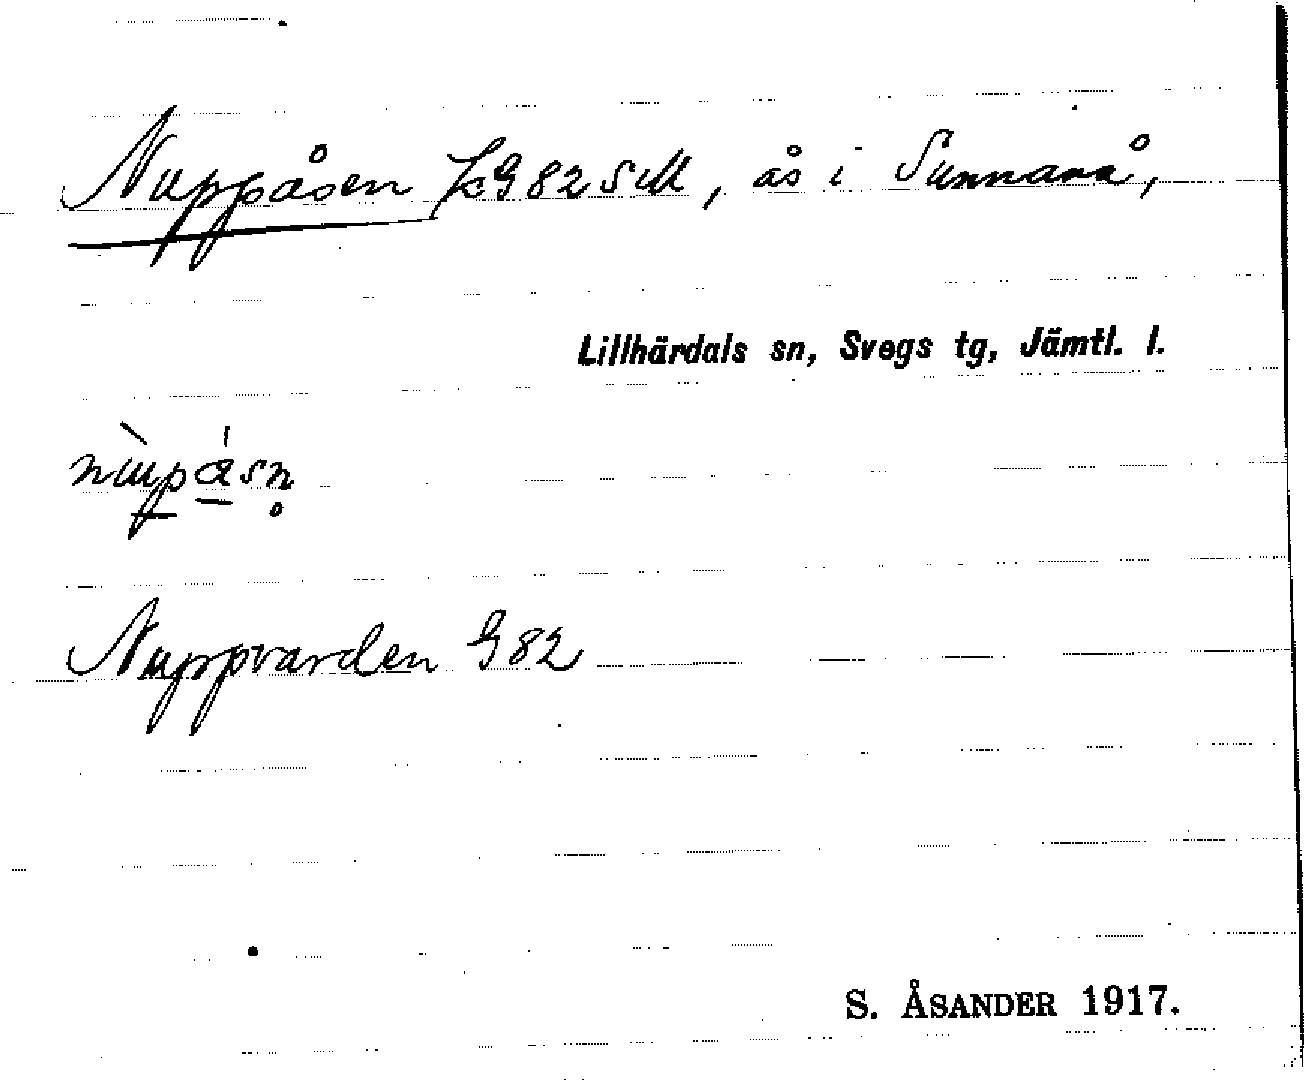 Nuppåsen G82SM, ås i Sunnanå,
Lillhärdals sn, Svegs tg, Jämtl. l.
Nuppvarden G82
S. ÅSANDER 1917.